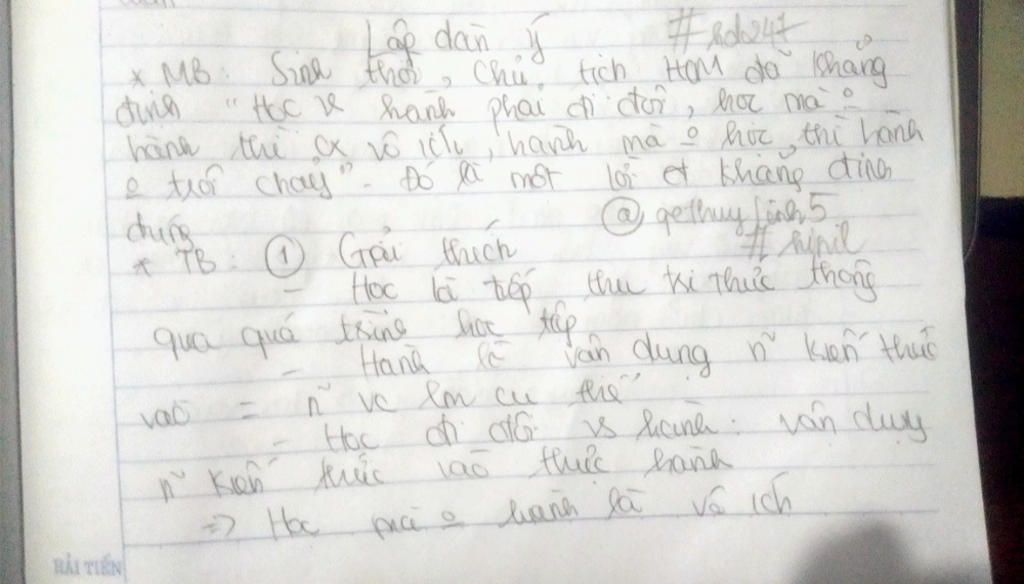 Lập dàn ý #hdo247
* MB: Sinh thời, Chủ tịch HCM đã khẳng
định "Học & hành phải đi đôi, học mà o
hành thì ... vô ích, hành mà o học, thì hành
o trôi chảy". Đó là một lời ... khẳng định
đúng @qethuylinh5
* TB: ① Giải thích #hipil
- Học là tiếp thu tri thức thông
qua quá trình học tập
- Hành là vận dụng n~ kiến thức
vào = n~ vc làm cụ thể
- Học đi đôi vs hành: vận dụng
n~ kiến thức vào thực hành
=> Học mà o hành là vô ích
HẢI TIẾN